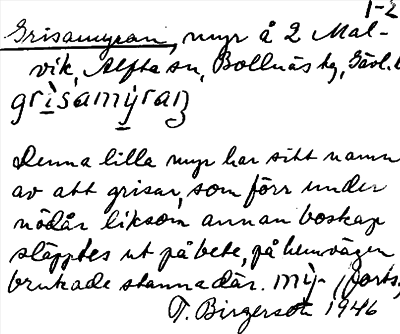 1-2
Grisamyran, myr å 2 Mal-
vik, Alfta sn, Bollnäs tg, Gävl. l
grìsamỳraꞑ
Denna lilla myr har sitt namn
av att grisar, som förr under
nödår liksom annan boskap
släpptes ut på bete, på hemvägen
brukade stanna där. mỳ- (forts.
T. Birgerson 1946